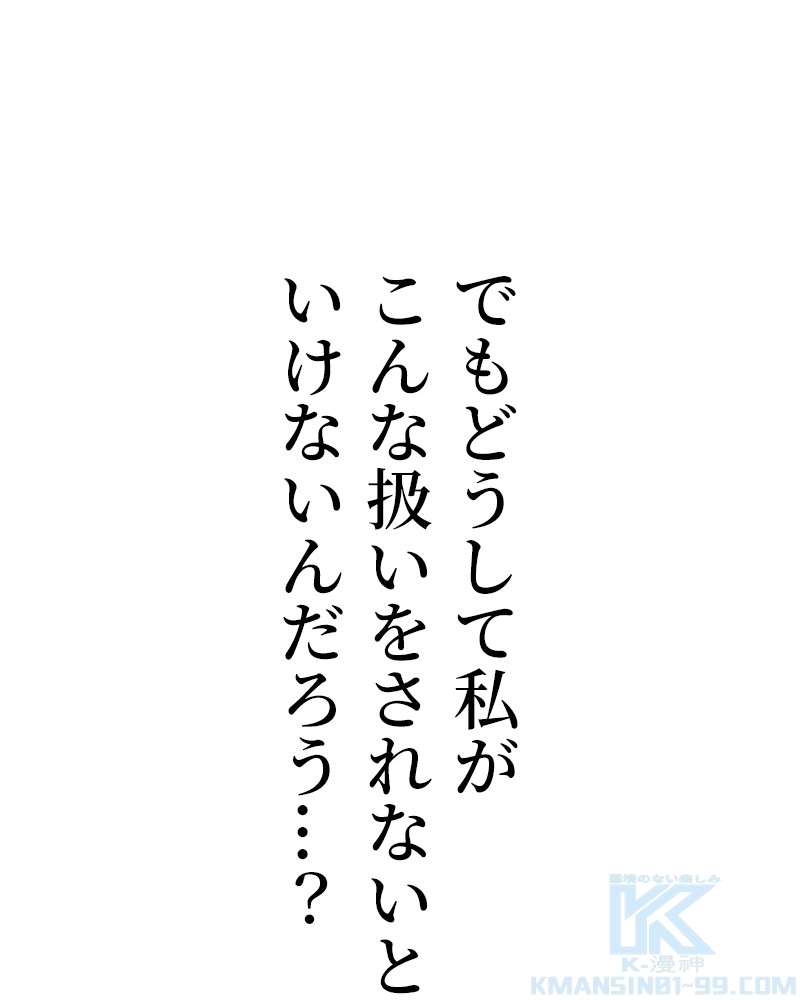 でもどうして私が
こんな扱いをされないと
いけないんだろう…？
限境のない楽しみ
K-漫神
KMANSIN01-99.COM